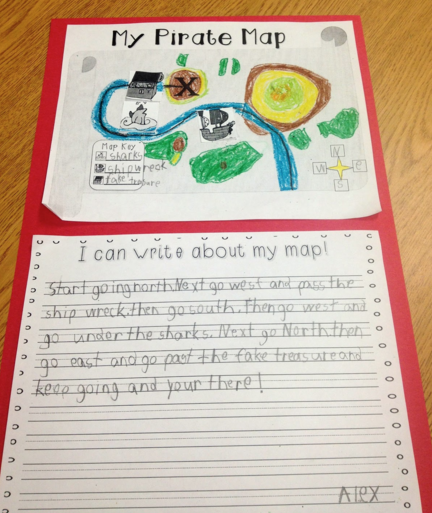 My Pirate Map
Map Key
sharks
shipwreck
fake treasure
X
N
W
E
S
I can write about my map!
Start going north. Next go west and pass the
ship wreck, then go south. Then go west and
go under the sharks. Next go North then
go east and go past the fake treasure and
keep going and your there!
Alex